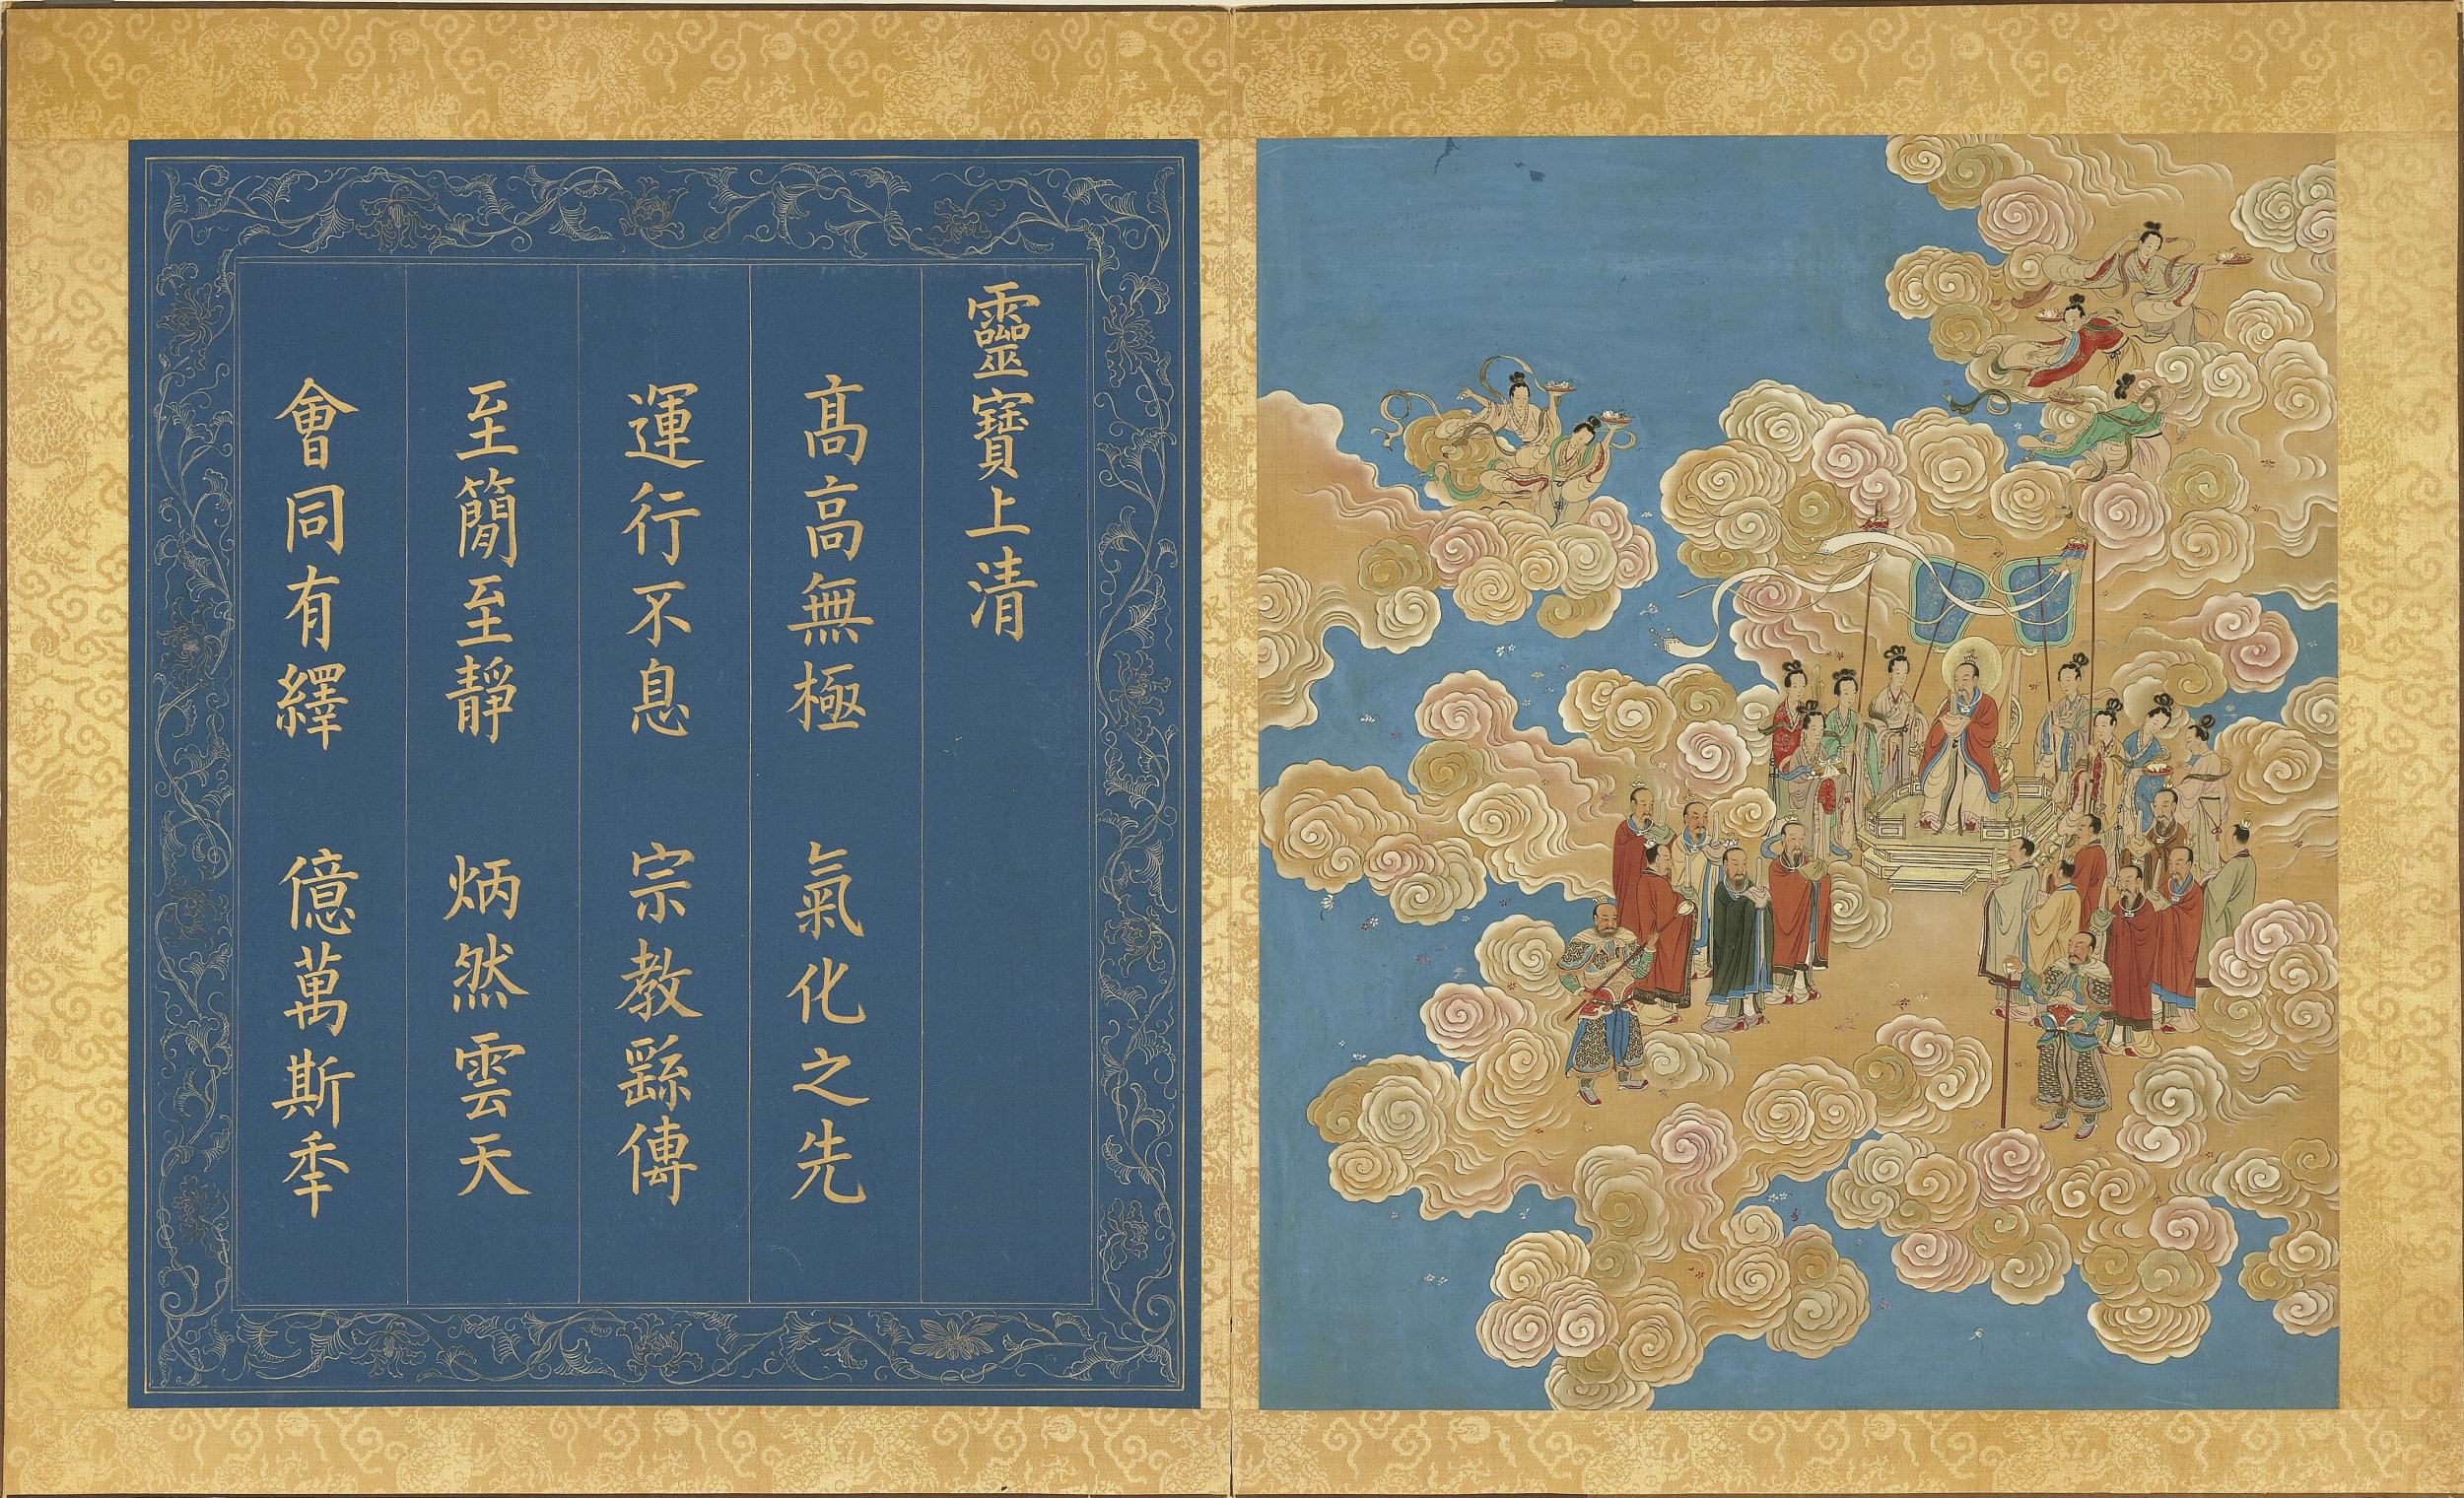 靈寶上清
高高無極　氣化之先
運行不息　宗教繇傳
至簡至靜　炳然雲天
會同有繹　億萬斯秊